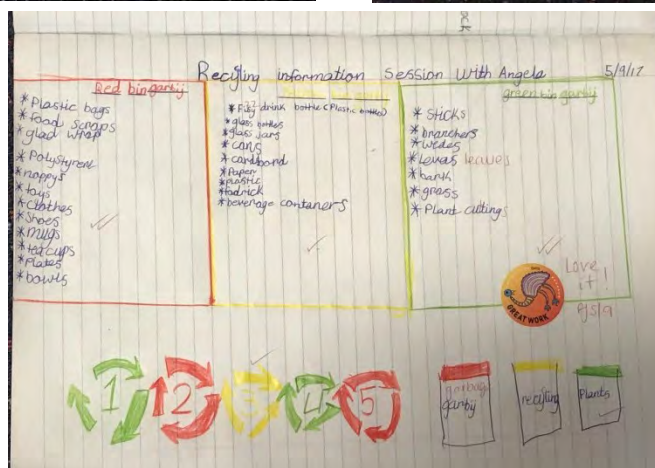 Recycling information Session With Angela 5/9/17
Red bin garbij
* Plastic bags
* food scraps
* glad wrap
* Polystyrene
* nappys
* toys
* Clothes
* Shoes
* mugs
* tea cups
* Plates
* bowls
* Fizzy drink bottle (Plastic bottles)
* glass bottles
* glass jars
* cans
* cardboard
* Paper
* plastic
* beverage contaners
green bin garbij
* Sticks
* branchers
* wedes
* levas leaves
* bark
* grass
* Plant cuttings
GREAT WORK
Love
it!
1 2 3 4 5
garbag
garbij
recyling
Plants